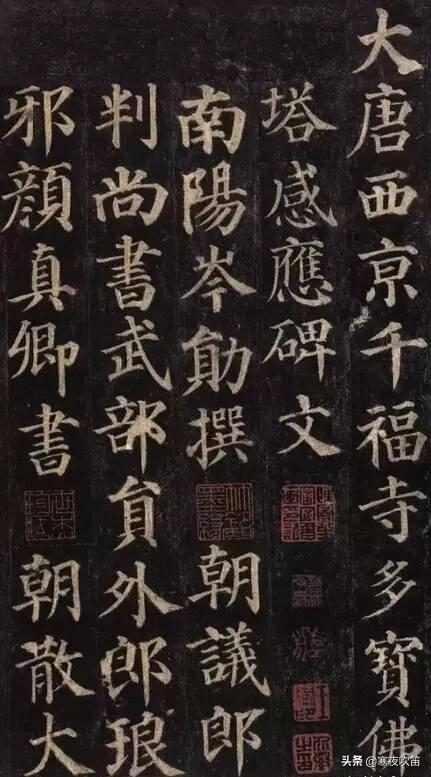 大唐西京千福寺多寶佛
塔感應碑文
南陽岑勛撰 朝議郎
判尚書武部員外郎琅
邪顏真卿書 朝散大
头条 @寒夜吹笛